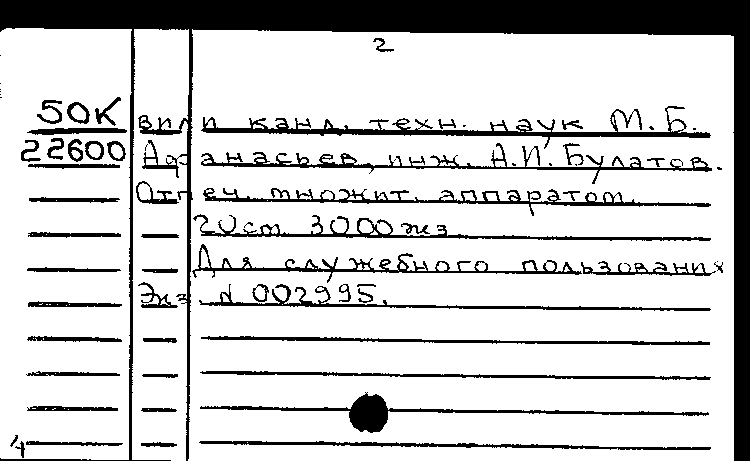 2
50К вили канд. техн. наук М.Б.
22600 Афанасьев, инж. А.И. Булатов.
Отпеч. множит. аппаратом.
20 см. 3000 экз
Для служебного пользования
Экз. N 002995.
4